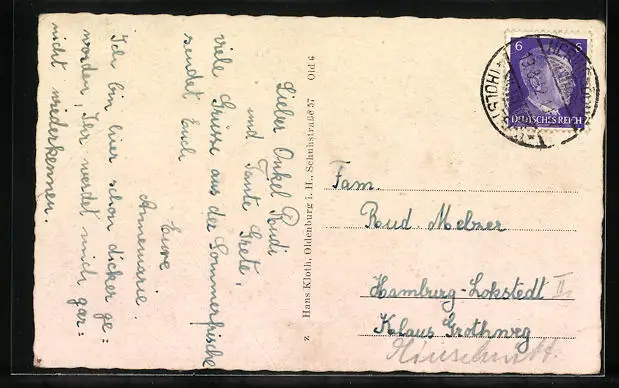 Lieber Onkel Rudi
und Tante Grete,
viele Grüsse aus der Sommerfrische
sendet Euch
Eure
Annemarie.
Ich bin hier schon dicker ge=
worden, Ihr werdet mich gar=
nicht wiederkennen.
z Hans Kloth, Oldenburg i. H., Schuhstraße 37 Old 6
6 6
DEUTSCHES REICH
(HOLST)
Fam.
Rud Melzer
Hamburg-Lokstedt II
Klaus Grothweg